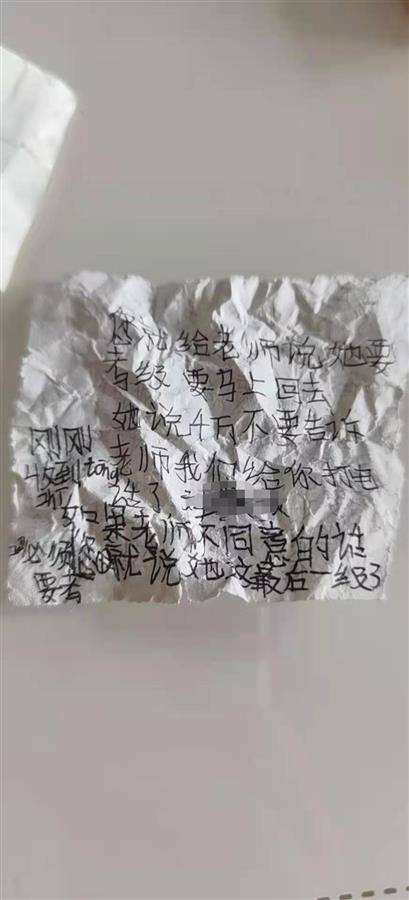 您就给老师说她要
考级 要马上回去
她说千万不要告诉
老师我们给你打电
话了
如果老师不同意的话
您就说她这最后一级了
刚刚
收到tong
知
必须
要考